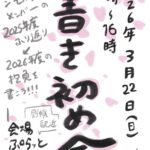 26年3月22日(日)
〜16時
書き初め会
メンバーの
2025年度
ふり返り
2026年の
抱負を
書こう!!!
会場
ぷらっと